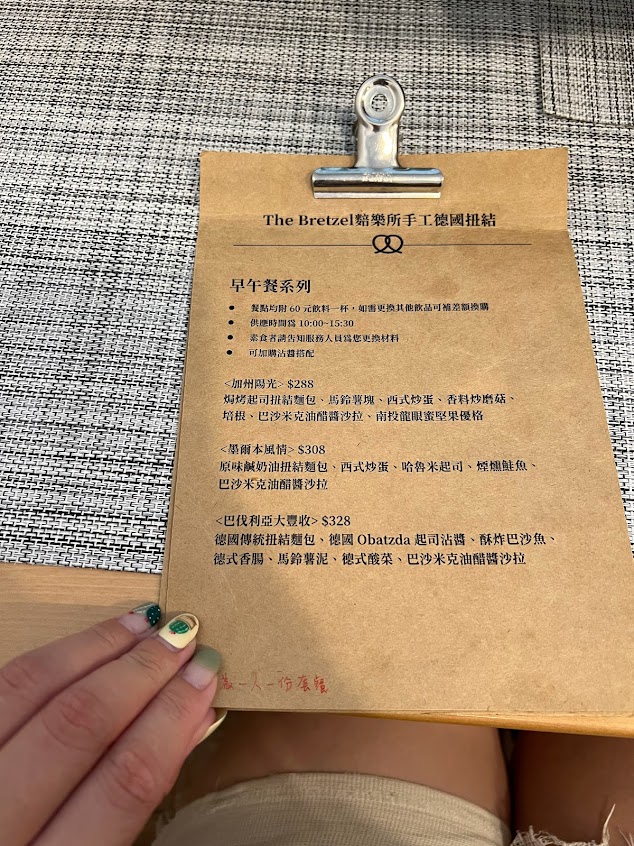 The Bretzel黯樂所手工德國扭結
早午餐系列
餐點均附 60 元飲料一杯，如需更換其他飲品可補差額換購
供應時間為 10:00~15:30
素食者請告知服務人員為您更換材料
可加購沾醬搭配
<加州陽光> $288
焗烤起司扭結麵包、馬鈴薯塊、西式炒蛋、香料炒磨菇、
培根、巴沙米克油醋醬沙拉、南投龍眼蜜堅果優格
<墨爾本風情> $308
原味鹹奶油扭結麵包、西式炒蛋、哈魯米起司、煙燻鮭魚、
巴沙米克油醋醬沙拉
<巴伐利亞大豐收> $328
德國傳統扭結麵包、德國 Obatzda 起司沾醬、酥炸巴沙魚、
德式香腸、馬鈴薯泥、德式酸菜、巴沙米克油醋醬沙拉
一人一份套餐